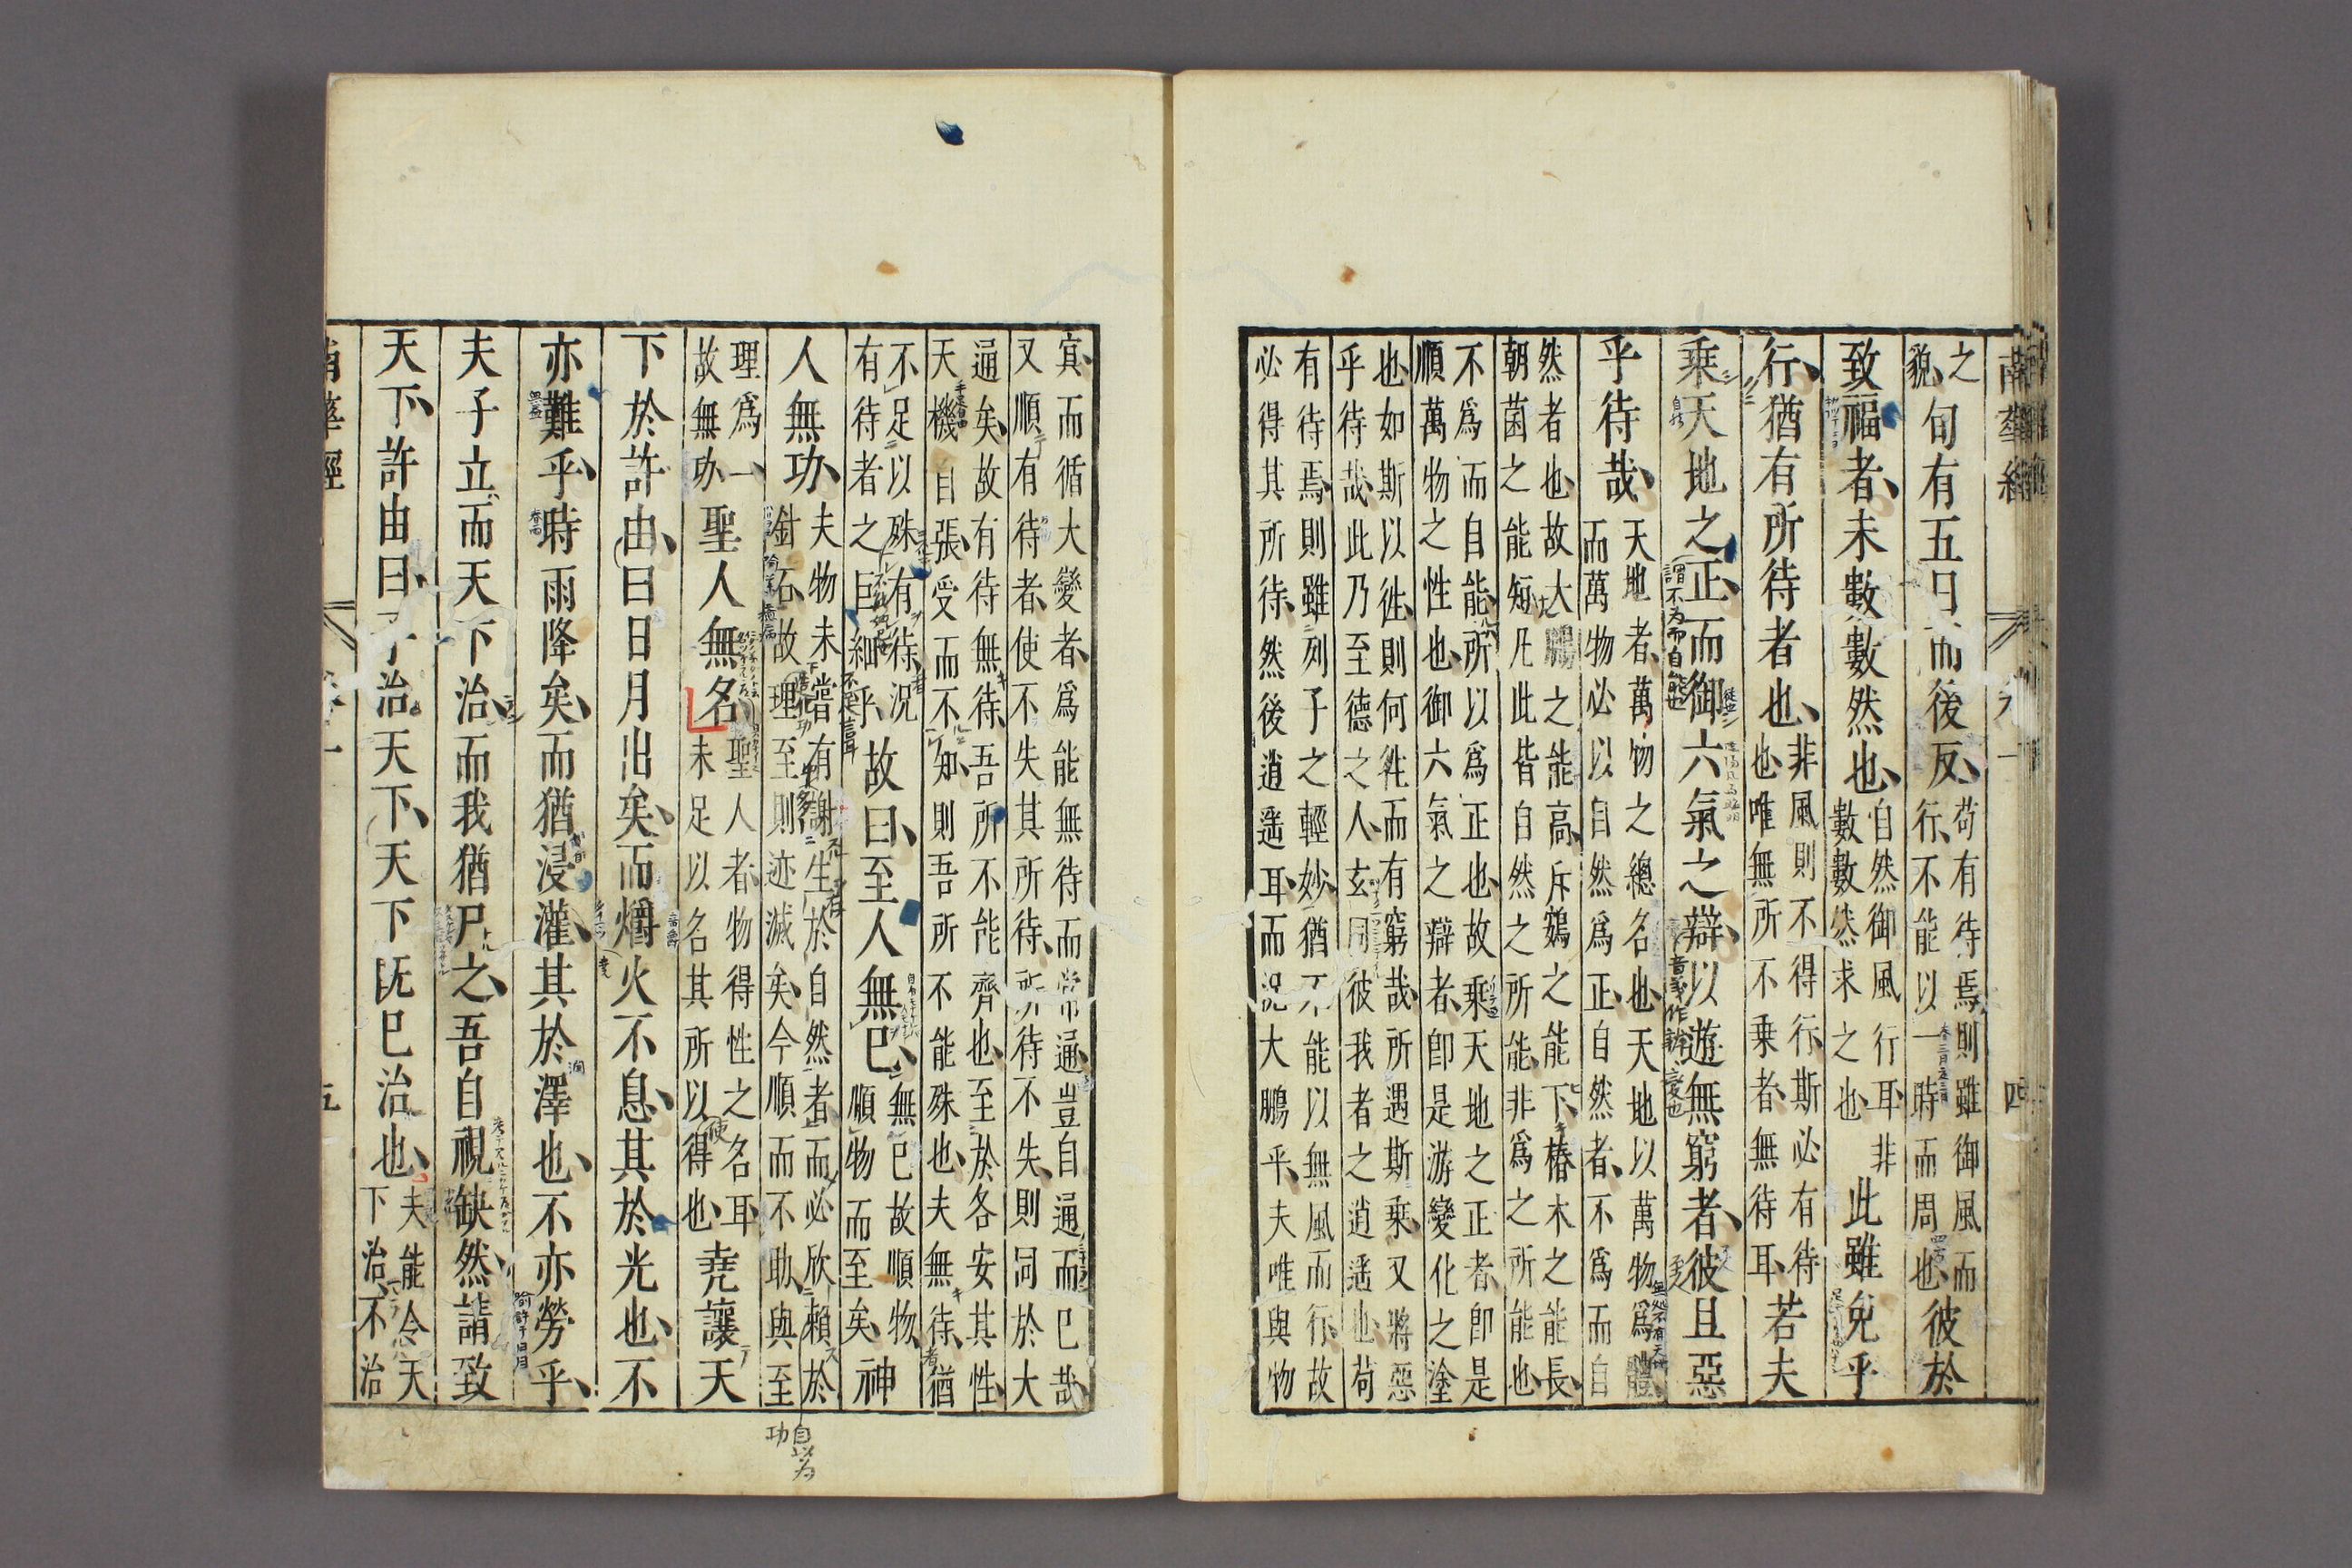 南華經 卷一 四
之
貌旬有五日而後反苟有待焉則雖御風而
行不能以一時而周也彼於
致福者未數數然也自然御風行耳非
數數然求之也此雖免乎
行猶有所待者也非風則不得行斯必有待
也唯無所不乘者無待耳若夫
乘天地之正而御六氣之辯以遊無窮者彼且惡
乎待哉天地者萬物之總名也天地以萬物爲體
而萬物必以自然爲正自然者不爲而自
然者也故大鵬之能高斥鷃之能下椿木之能長
朝菌之能短凡此皆自然之所能非爲之所能也
不爲而自能所以爲正也故乘天地之正者卽是
順萬物之性也御六氣之辯者卽是游變化之塗
也如斯以往則何往而有窮哉所遇斯乘又將惡
乎待哉此乃至德之人玄同彼我者之逍遙也苟
有待焉則雖列子之輕妙猶不能以無風而行故
必得其所待然後逍遙耳而況大鵬乎夫唯與物
冥而循大變者爲能無待而常通豈自通而已哉
又順有待者使不失其所待所待不失則同於大
通矣故有待無待吾所不能齊也至於各安其性
天機自張受而不知則吾所不能殊也夫無待猶
不足以殊有待況
有待者之巨細乎故曰至人無已無已故順物
順物而至矣神
人無功夫物未嘗有謝生於自然者而必欣賴於
針石故理至則迹滅矣今順而不助與至
理爲一
故無功聖人無名聖人者物得性之名耳
未足以名其所以得也堯讓天
下於許由曰日月出矣而爝火不息其於光也不
亦難乎時雨降矣而猶浸灌其於澤也不亦勞乎
夫子立而天下治而我猶尸之吾自視缺然請致
天下許由曰子治天下天下旣已治也夫能令天
下治不治
南華經 卷一 五
自以为
功